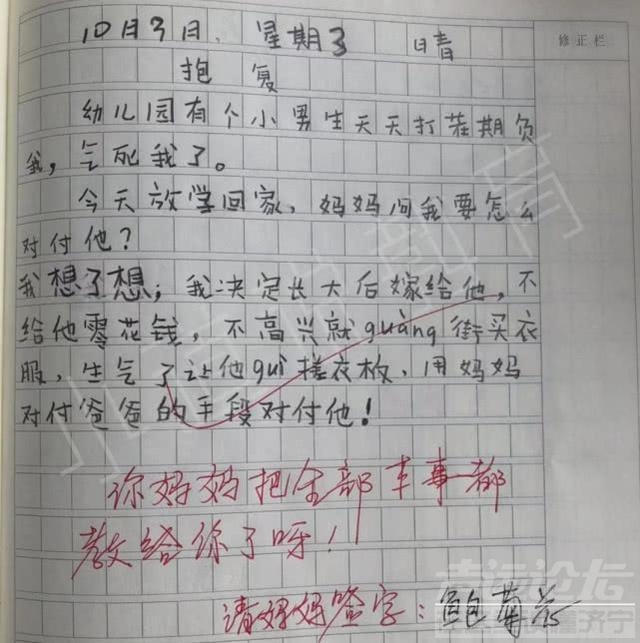 10月3日. 星期3 晴
修正栏
抱复
幼儿园有个小男生天天打茬期负
我，气死我了。
今天放学回家，妈妈问我要怎么
对付他？
我想了想；我决定长大后嫁给他，不
给他零花钱，不高兴就guàng街买衣
服，生气了让他guì搓衣板，用妈妈
对付爸爸的手段对付他！
你妈妈把全部本事都
教给你了呀！
请妈妈签字：鲍菊花